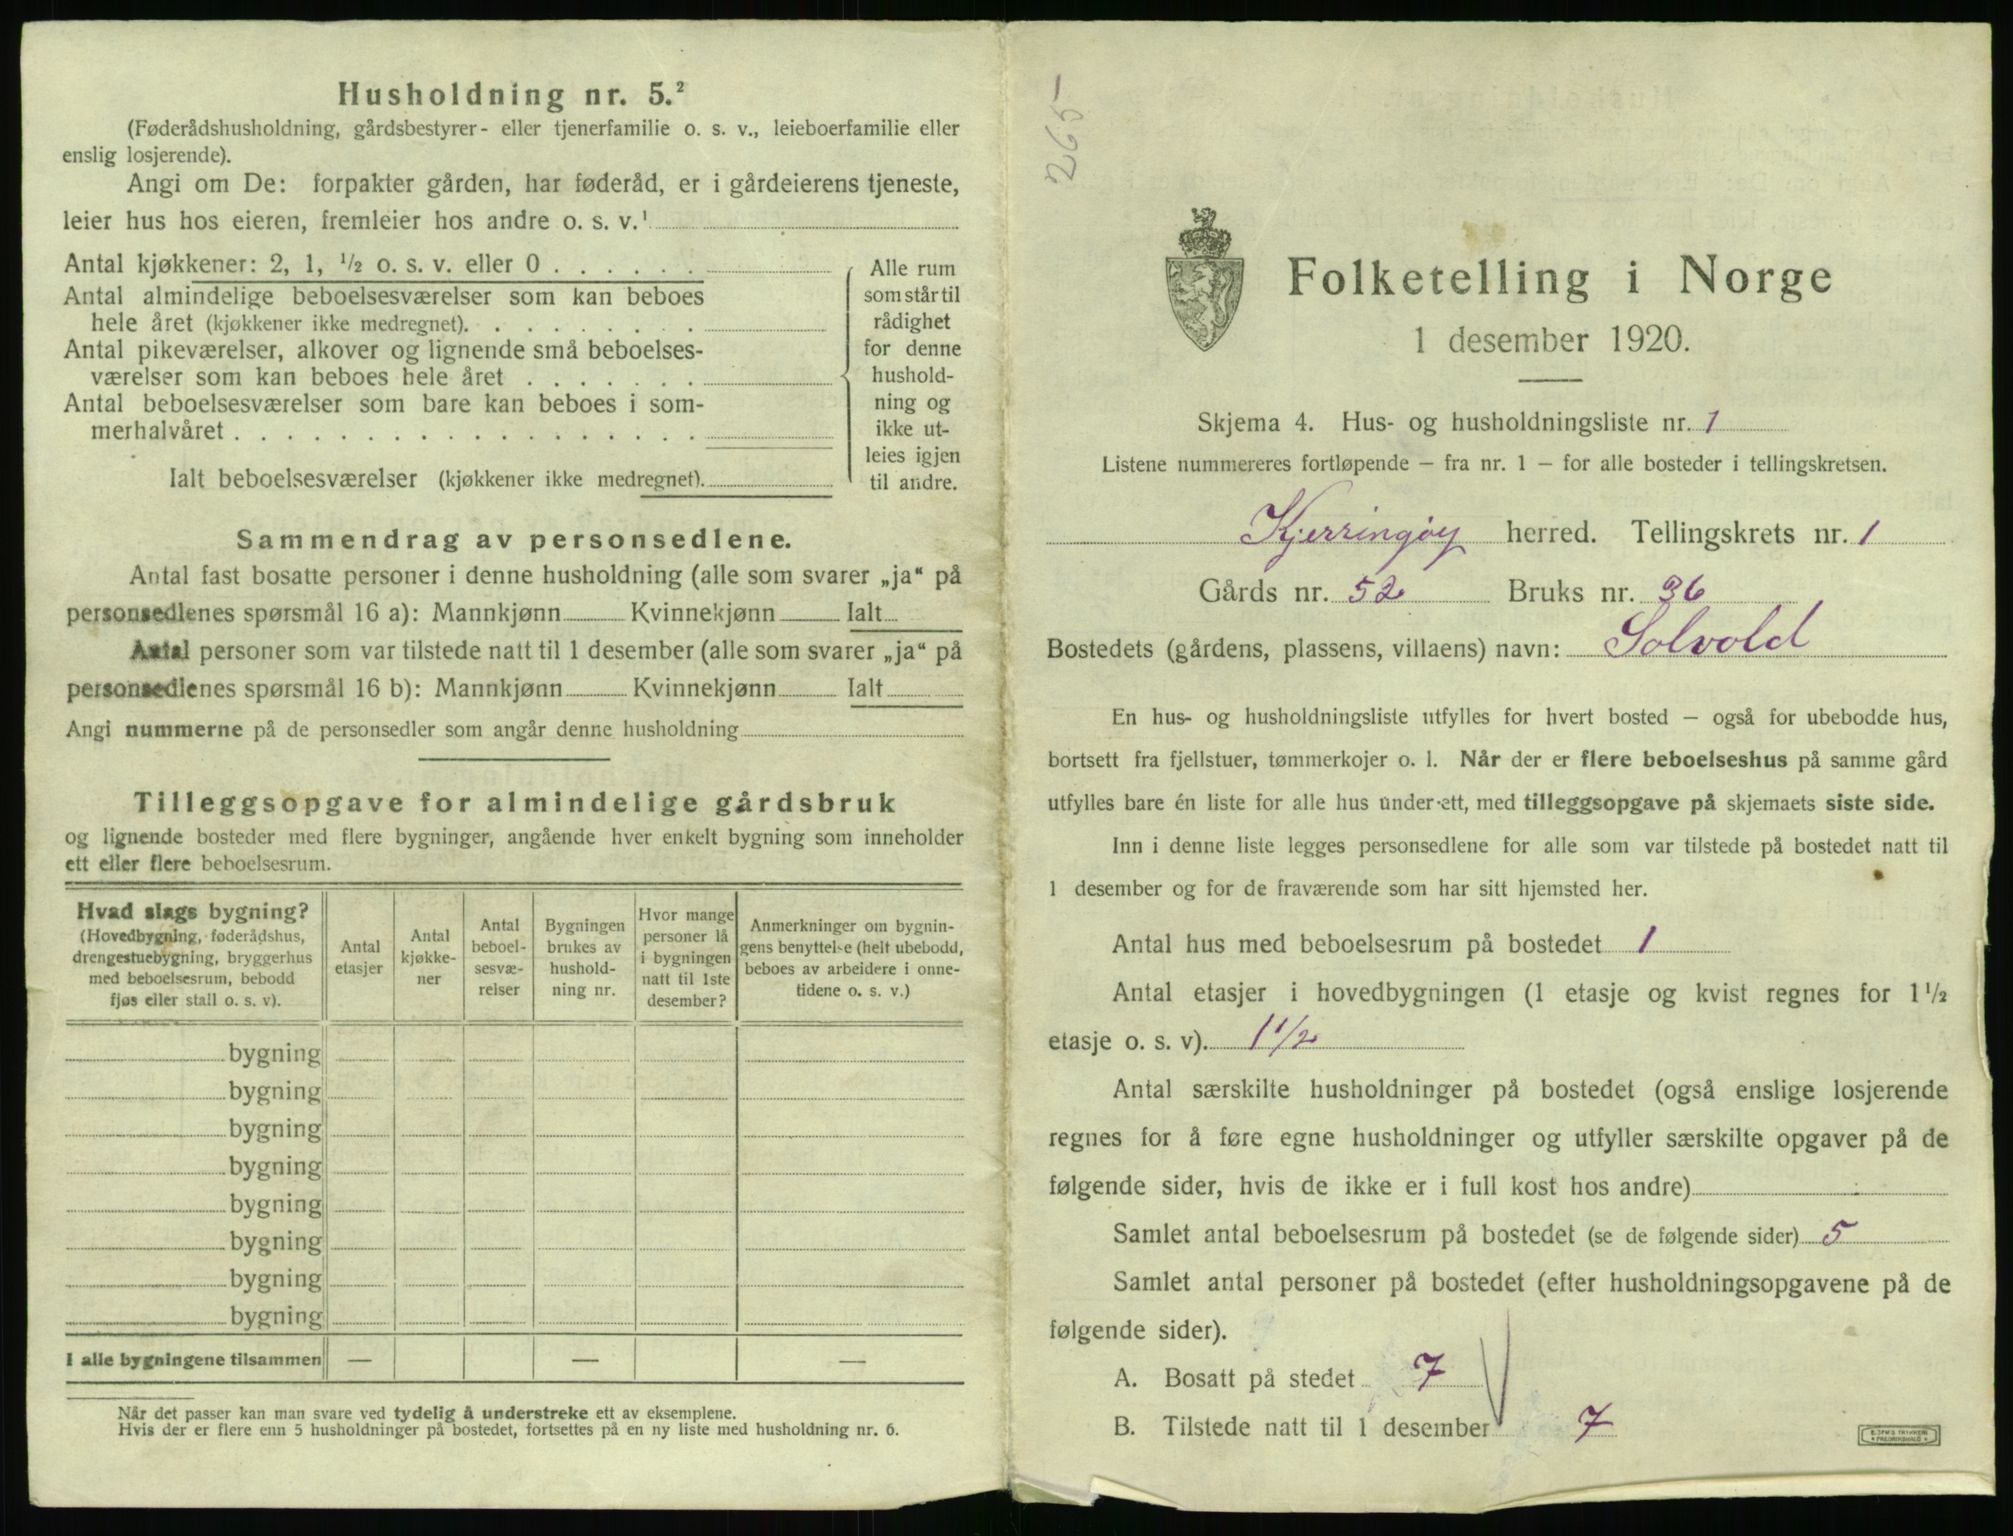 Husholdning nr. 5.²
(Føderådshusholdning, gårdsbestyrer- eller tjenerfamilie o. s. v., leieboerfamilie eller
enslig losjerende).
Angi om De: forpakter gården, har føderåd, er i gårdeierens tjeneste,
leier hus hos eieren, fremleier hos andre o. s. v.¹
Antal kjøkkener: 2, 1, ½ o. s. v. eller 0 . . . . . .
Antal almindelige beboelsesværelser som kan beboes
hele året (kjøkkener ikke medregnet). . . . . . . . .
Antal pikeværelser, alkover og lignende små beboelses-
værelser som kan beboes hele året . . . . . . .
Antal beboelsesværelser som bare kan beboes i som-
merhalvåret . . . . . . . . . . . . . . . . . .
Ialt beboelsesværelser (kjøkkener ikke medregnet).
Alle rum
som står til
rådighet
for denne
hushold-
ning og
ikke ut-
leies igjen
til andre.
Sammendrag av personsedlene.
Antal fast bosatte personer i denne husholdning (alle som svarer „ja“ på
personsedlenes spørsmål 16 a): Mannkjønn Kvinnekjønn Ialt
Antal personer som var tilstede natt til 1 desember (alle som svarer „ja“ på
personsedlenes spørsmål 16 b): Mannkjønn Kvinnekjønn Ialt
Angi nummerne på de personsedler som angår denne husholdning
Tilleggsopgave for almindelige gårdsbruk
og lignende bosteder med flere bygninger, angående hver enkelt bygning som inneholder
ett eller flere beboelsesrum.
Hvad slags bygning?
(Hovedbygning, føderådshus,
drengestuebygning, bryggerhus
med beboelsesrum, bebodd
fjøs eller stall o. s. v).
Antal
etasjer
Antal
kjøkke-
ner
Antal
beboel-
sesvæ-
relser
Bygningen
brukes av
hushold-
ning nr.
Hvor mange
personer lå
i bygningen
natt til 1ste
desember?
Anmerkninger om bygnin-
gens benyttelse (helt ubebodd,
beboes av arbeidere i onne-
tidene o. s. v.)
bygning
bygning
bygning
bygning
bygning
bygning
bygning
bygning
I alle bygningene tilsammen — — —
Når det passer kan man svare ved tydelig å understreke ett av eksemplene.
Hvis der er flere enn 5 husholdninger på bostedet, fortsettes på en ny liste med husholdning nr. 6.
265
Folketelling i Norge
1 desember 1920.
Skjema 4. Hus- og husholdningsliste nr. 1
Listene nummereres fortløpende – fra nr. 1 – for alle bosteder i tellingskretsen.
Kjerringøy herred. Tellingskrets nr. 1
Gårds nr. 52 Bruks nr. 36
Bostedets (gårdens, plassens, villaens) navn: Solvold
En hus- og husholdningsliste utfylles for hvert bosted – også for ubebodde hus,
bortsett fra fjellstuer, tømmerkojer o. l. Når der er flere beboelseshus på samme gård
utfylles bare én liste for alle hus under ett, med tilleggsopgave på skjemaets siste side.
Inn i denne liste legges personsedlene for alle som var tilstede på bostedet natt til
1 desember og for de fraværende som har sitt hjemsted her.
Antal hus med beboelsesrum på bostedet 1
Antal etasjer i hovedbygningen (1 etasje og kvist regnes for 1½
etasje o. s. v). 1½
Antal særskilte husholdninger på bostedet (også enslige losjerende
regnes for å føre egne husholdninger og utfyller særskilte opgaver på de
følgende sider, hvis de ikke er i full kost hos andre)
Samlet antal beboelsesrum på bostedet (se de følgende sider) 5
Samlet antal personer på bostedet (efter husholdningsopgavene på de
følgende sider).
A. Bosatt på stedet 7
B. Tilstede natt til 1 desember 7